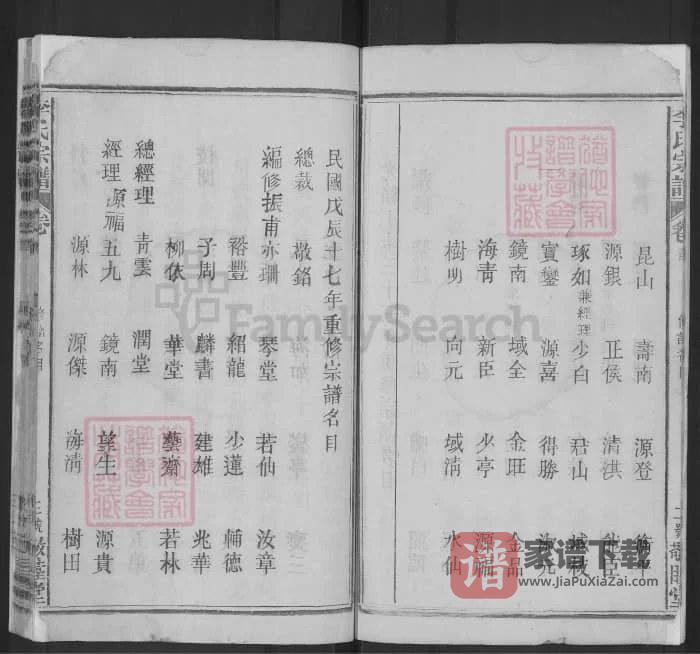 李氏宗譜 卷
昆山 壽南 源登
源銀 正侯 清淇
琢如 兼經理 少白 君山
寶鑾 源喜 得勝
鏡南 域全 金旺 金品
海青 新臣 少亭 源福
樹明 向元 域清 水仙
民國戊辰十七年重修宗譜名目
總裁 敬銘
編修 振甫 亦珊 琴堂 若仙 汝章
裕豐 紹龍 少蓮 輔德
子周 麟書 建雄 兆華
柳依 華堂 藝齋 若林
總經理 青雲 潤堂
經理 源福 五九 鏡南 望生 源貴
源林 源傑 海清 樹田
李氏宗譜 卷
FamilySearch
家谱下载
www.JiaPuXiaZai.com